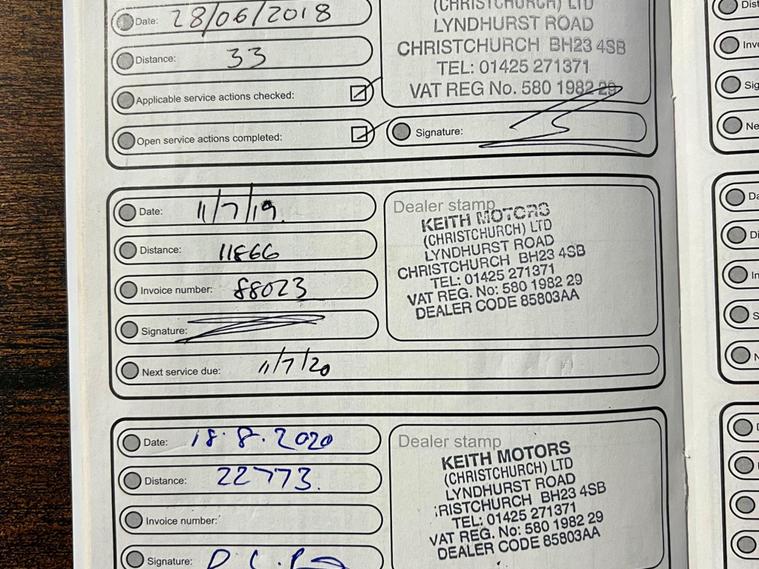 (CHRISTCHURCH) LTD
Date: 28/06/2018
LYNDHURST ROAD
Distance: 33
CHRISTCHURCH BH23 4SB
TEL: 01425 271371
Applicable service actions checked:
VAT REG No. 580 1982 29
Open service actions completed:
Signature:
Date: 11/7/19.
Dealer stamp
KEITH MOTORS
(CHRISTCHURCH) LTD
LYNDHURST ROAD
CHRISTCHURCH BH23 4SB
TEL: 01425 271371
VAT REG. No: 580 1982 29
DEALER CODE 85803AA
Distance: 11866
Invoice number: 88023
Signature:
Next service due: 11/7/20
Date: 18.8.2020
Dealer stamp
KEITH MOTORS
(CHRISTCHURCH) LTD
LYNDHURST ROAD
RISTCHURCH BH23 4SB
TEL: 01425 271371
VAT REG. No: 580 1982 29
DEALER CODE 85803AA
Distance: 22773.
Invoice number:
Signature: